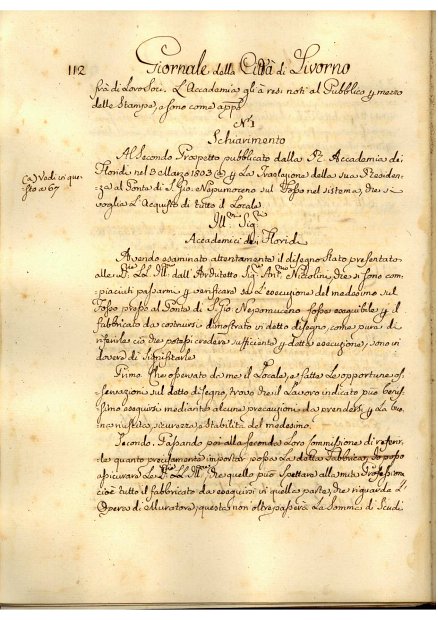 112 Giornale della Città di Livorno
frà di Loro Soci. L'Accademia gli à resi noti al Pubblico p mezzo
delle Stampe, e sono come app.o
N.o 1
Schiarimento
Al Secondo Prospetto pubblicato dalla R. Accademia dei
Floridi nel Marzo 1803 (a) p La Traslazione della sua Residen-
(a) Vedi in que-
sto a 67
za al Ponte di S. Gio: Nepomuceno sul Fosso nel sistema, che si
voglia L'Acquisto di tutto il Locale
Ill.mi Sig.ri
Accademici dei Floridi
Avendo esaminato attentamente il disegno stato presentato
alle LL. Ill.me dall'Architetto Sig.e Ant.o Nicolini, che si sono com-
piaciuti passarmi p verificare se L'esecuzione del medesimo sul
Fosso presso al Ponte di S. Gio: Nepomuceno fosse eseguibile p il
fabbricato da costruirsi dimostrato in detto disegno, come pure di
riferirle ciò che potessi credere sufficiente p detta esecuzione, sono in
dovere di significarle
Primo. Che osservato da me il Locale, e fatte Le opportune os-
servazioni sul detto disegno, trovo che il Lavoro indicato può benis-
simo eseguirsi mediante alcune precauzioni da prendersi p La buo-
na riuscita, sicurezza, e Stabilità del medesimo.
Secondo. Passando poi alla seconda Loro commissione di referir-
le quanto precisamente importar possa La detta Fabbrica, che posso
assicurare Le LL. Ill.me che quello può Spettare alla mia Professione
cioè tutto il fabbricato da eseguirsi in quella parte, che riguarda L'
Opera di Muratore, questa non oltrepasserà La Somma di Scudi